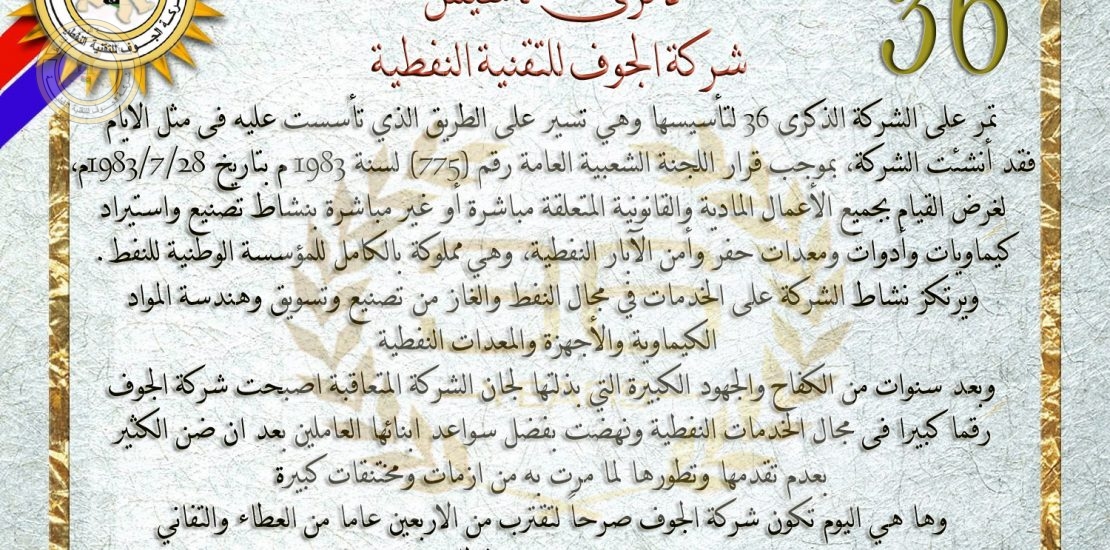 36
شركة الجوف للتقنية النفطية
شركة الجوف للتقنية النفطية
تمر على الشركة الذكرى 36 لتأسيسها وهي تسير على الطريق الذي تأسست عليه فى مثل الايام
فقد أنشئت الشركة، بموجب قرار اللجنة الشعبية العامة رقم (775) لسنة 1983 م بتاريخ 1983/7/28م،
لغرض القيام بجميع الأعمال المادية والقانونية المتعلقة مباشرة أو غير مباشرة بنشاط تصنيع واستيراد
كيماويات وأدوات ومعدات حفر وأمن الآبار النفطية، وهي مملوكة بالكامل للمؤسسة الوطنية للنفط .
ويرتكز نشاط الشركة على الخدمات في مجال النفط والغاز من تصنيع وتسويق وهندسة المواد
الكيماوية والأجهزة والمعدات النفطية
وبعد سنوات من الكفاح والجهود الكبيرة التي بذلتها لجان الشركة المتعاقبة اصبحت شركة الجوف
رقما كبيرا فى مجال الخدمات النفطية ونهضت بفضل سواعد ابنائها العاملين بعد ان ضن الكثير
بعدم تقدمها وتطورها لما مرت به من ازمات ومختنقات كبيرة
وها هي اليوم تكون شركة الجوف صرحاً لتقترب من الاربعين عاما من العطاء والتفاني